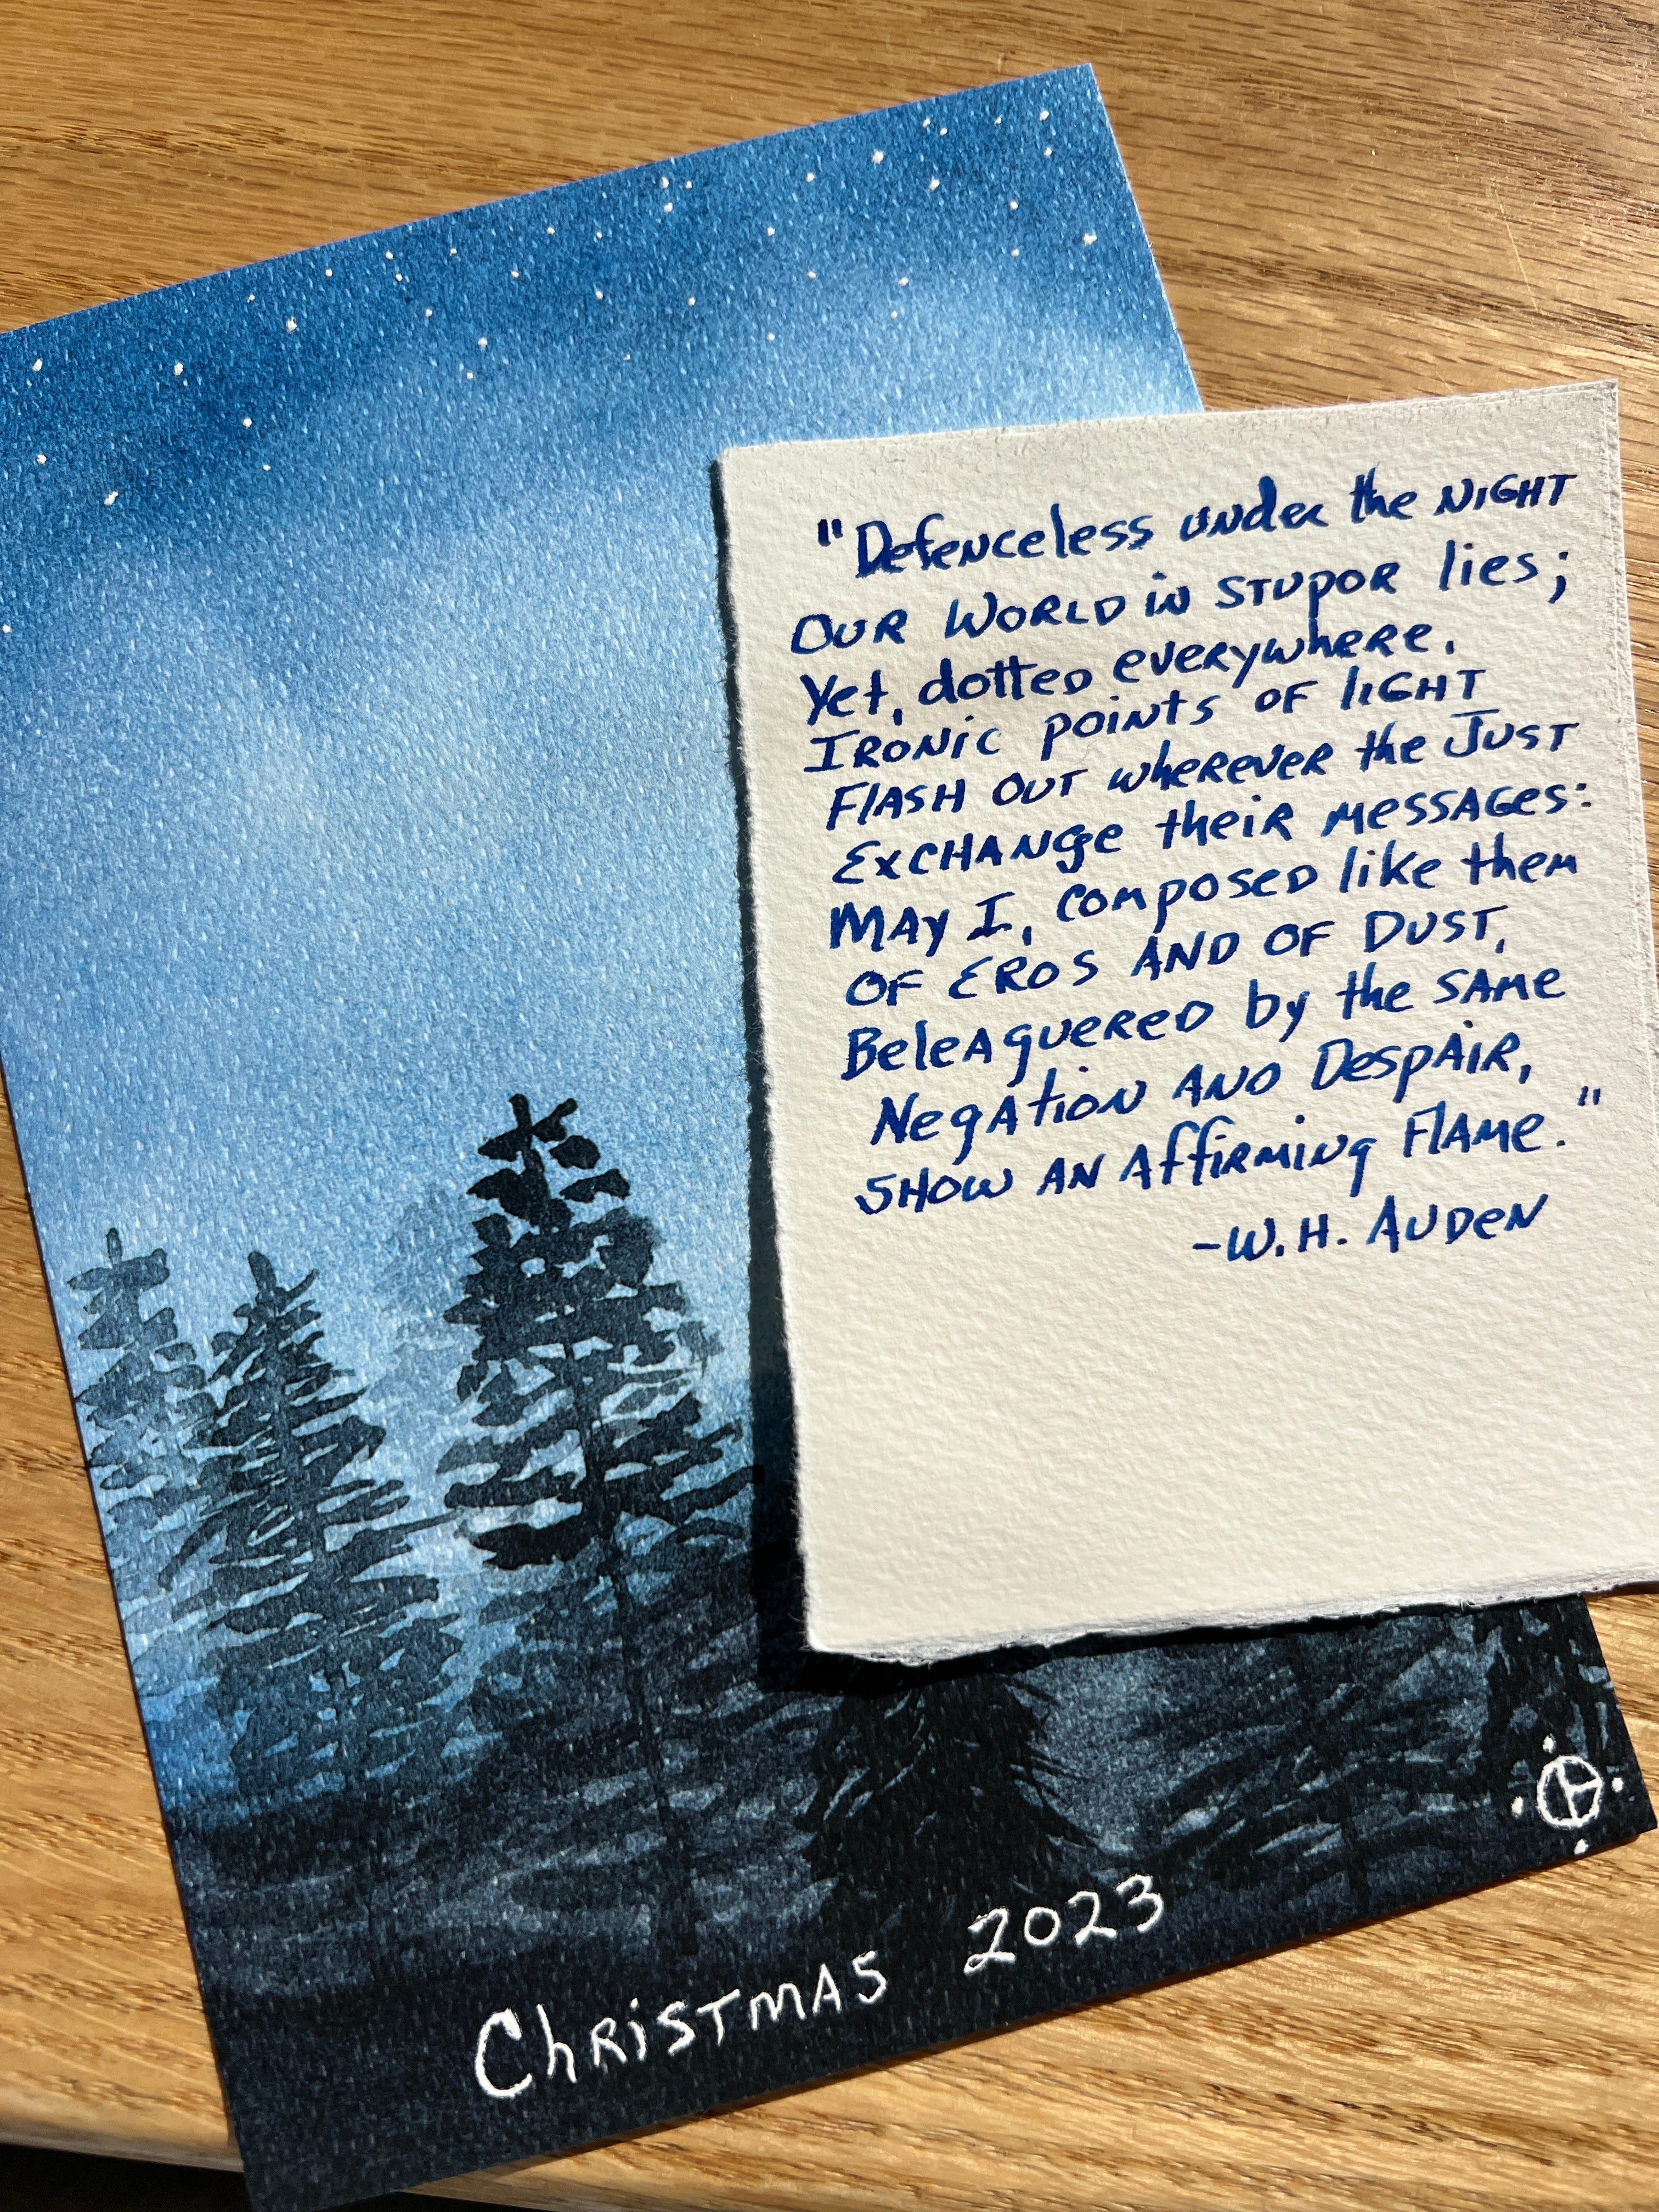 "Defenceless under the NIGHT
OUR WORLD in STUPOR lies;
Yet, dotted everywhere,
IRONIC points of light
FLASH OUT wherever the JUST
EXCHANge their messages:
MAY I, composed like them
OF EROS AND OF DUST,
BeleAguered by the SAMe
NegAtion AND DespAIR,
SHOW AN Affirming FLAMe."
-W. H. AUDEN
CHRISTMAS 2023